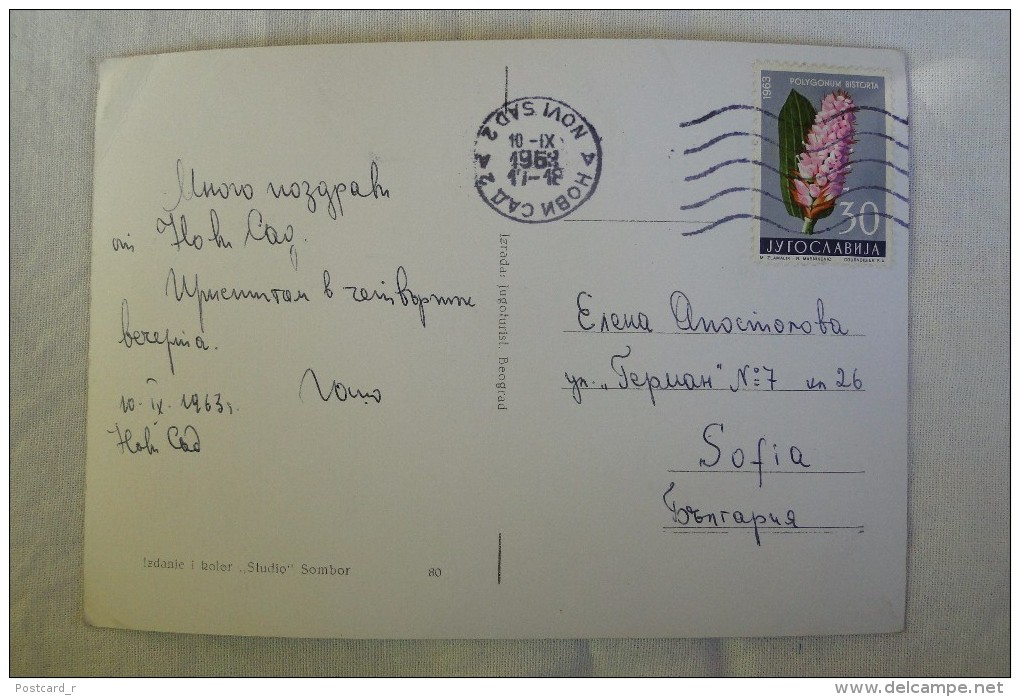 Много поздрави
от Нови Сад.
Пристигам в четвъртък
вечерта.
10-IX-1963г.
Нови Сад
Izdanje i kolor „Studio" Sombor 80
Izrada: jugoturist, Beograd
NOVI SAD 2
10-IX
1963
17-18
НОВИ САД 2
1963
POLYGONUM BISTORTA
30
ЈУГОСЛАВИЈА
Елена Апостолова
ул. „Герман" №7 кл 26
Sofia
България
Postcard_r
www.delcampe.net